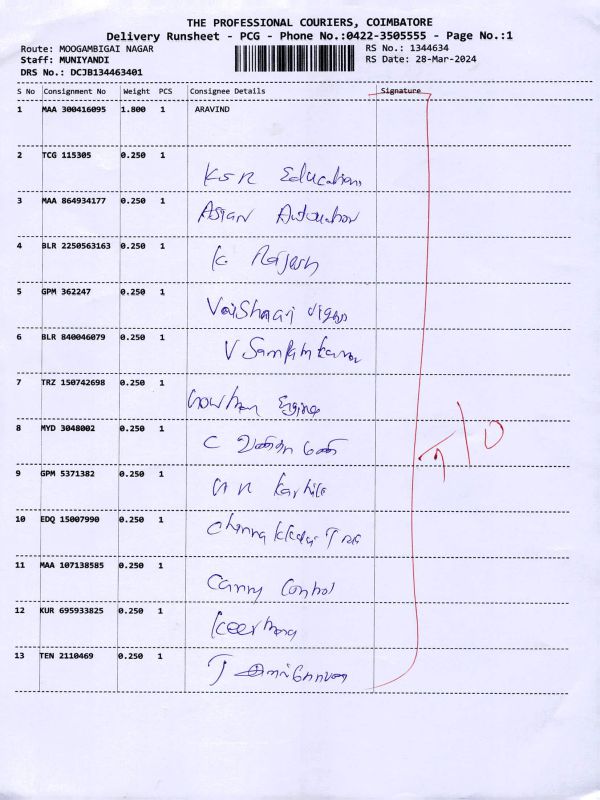 THE PROFESSIONAL COURIERS, COIMBATORE
Delivery Runsheet - PCG - Phone No.:0422-3505555 - Page No.:1
Route: MOOGAMBIGAI NAGAR RS No.: 1344634
Staff: MUNIYANDI RS Date: 28-Mar-2024
DRS No.: DCJB134463401
S No Consignment No Weight PCS Consignee Details Signature
1 MAA 300416095 1.800 1 ARAVIND
2 TCG 115305 0.250 1
KSR Education
3 MAA 864934177 0.250 1
Asian Automation
4 BLR 2250563163 0.250 1
K Rajesh
5 GPM 362247 0.250 1
6 BLR 840046079 0.250 1
V
7 TRZ 150742698 0.250 1
8 MYD 3048002 0.250 1
C
9 GPM 5371382 0.250 1
10 EDQ 15007990 0.250 1
11 MAA 107138585 0.250 1
Control
12 KUR 695933825 0.250 1
13 TEN 2110469 0.250 1
T